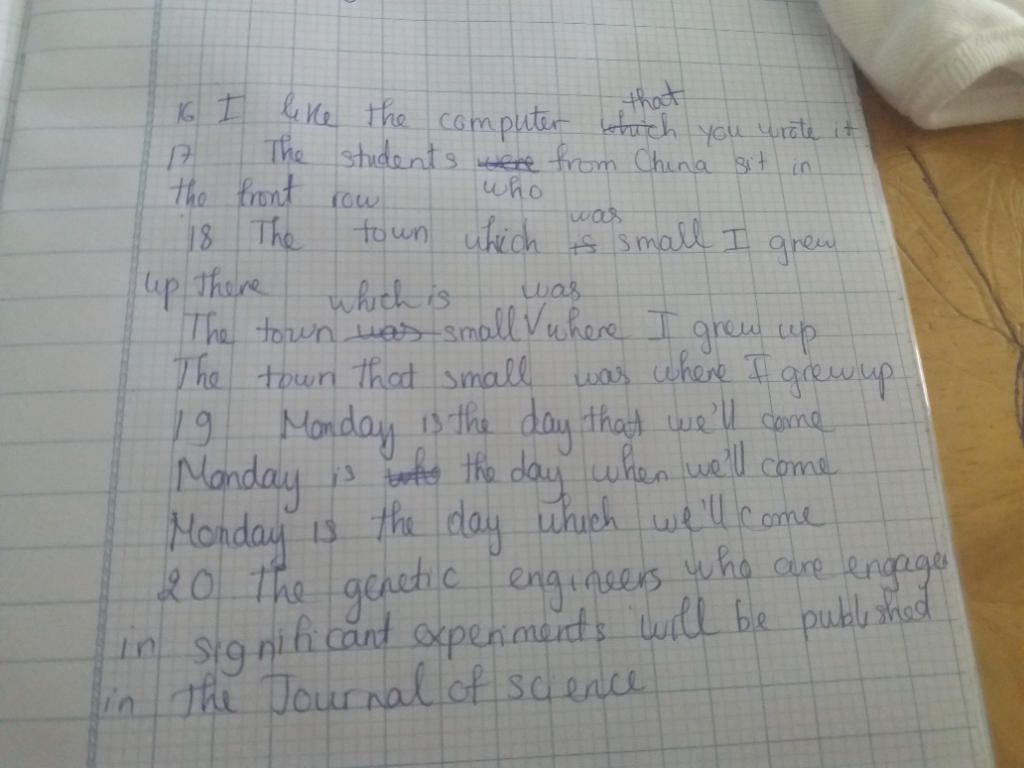 that
16 I like the computer which you wrote it
17 The students were from China sit in
the front row who
was
18 The town which is small I grew
up there which is was
The town was small where I grew up
The town that small was where I grew up
19 Monday is the day that we'll come
Monday is the day when we'll come
Monday is the day which we'll come
20 The genetic engineers who are engage
in significant experiments will be published
in the Journal of science